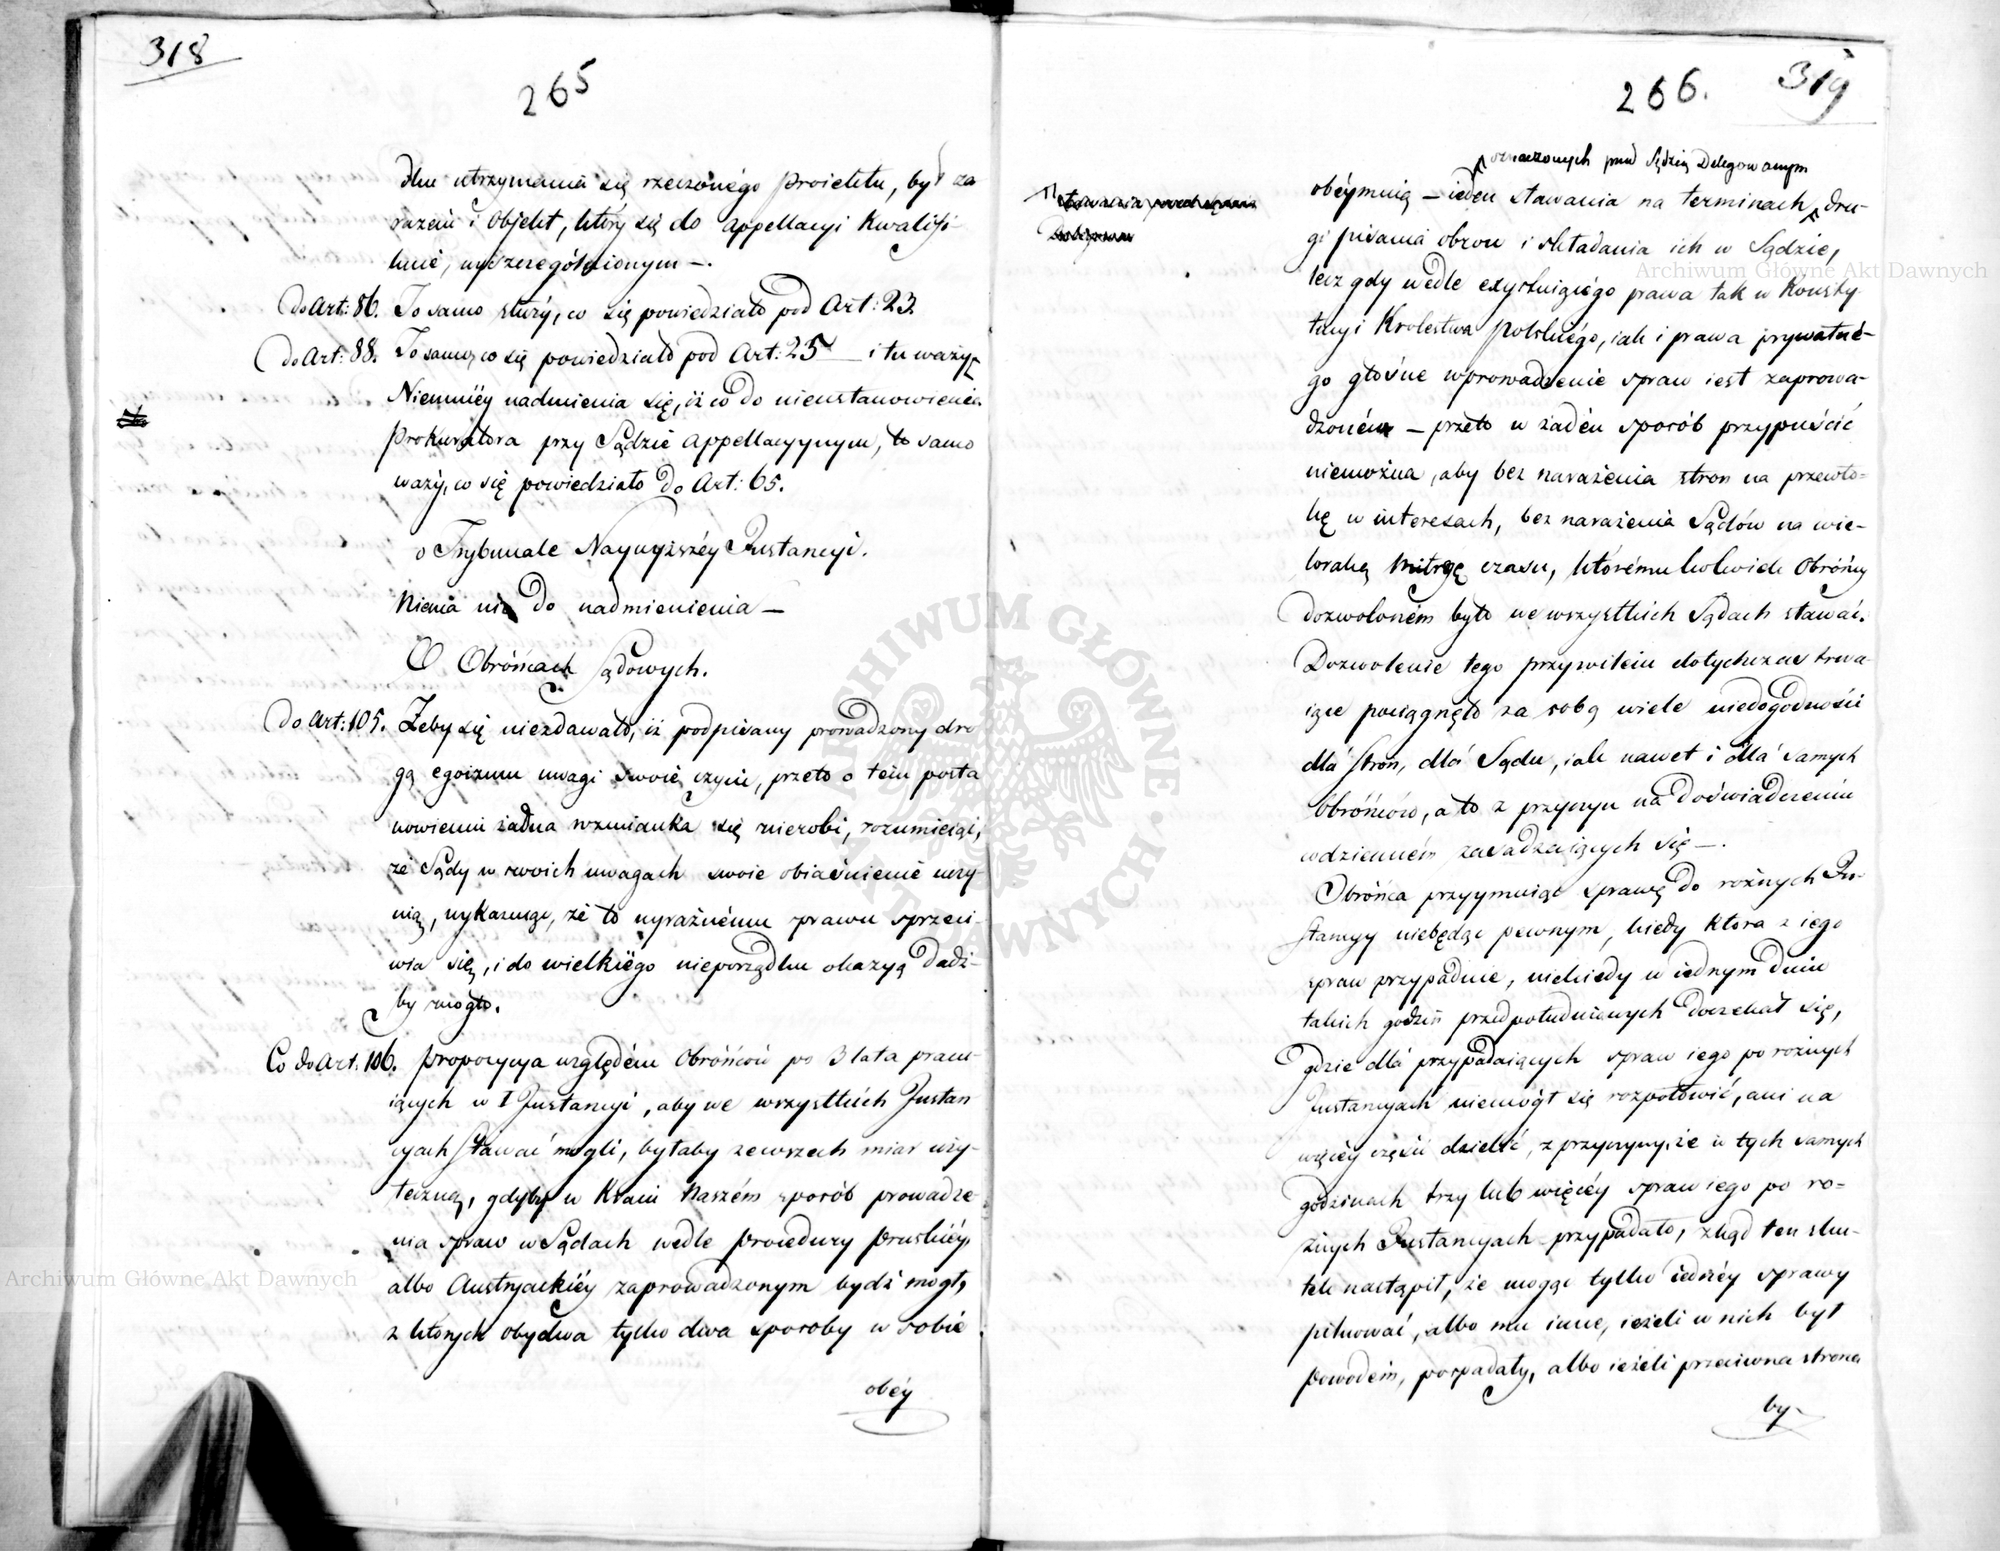 318
265
dku utrzymania się rzeczonego proiektu, był za
razem i objekt, który się do appellacyi kwalifi-
kuie, wyszczególnionym —.
do Art: 86. To samo służy, co się powiedziało pod Art: 23.
do Art: 88. To samo, co się powiedziało pod Art: 25 — i tu waży
Niemniéy nadmienia się, iż co do nieustanowienia
Prokuratora przy Sądzie Appellacyynym, to samo
waży, co się powiedziało do Art: 65.
o Trybunale Naywyższéy Instancyi.
Niema nic do nadmienienia —
O Obrońcach Sądowych.
do Art: 105. Żeby się niezdawało, iż podpisany prowadzony dro
gą egoizmu uwagi swoie czyni, przeto o tém posta
nowieniu żadna wzmianka się nierobi, rozumieiąc,
że Sądy w swoich uwagach swoie obiaśnienie uczy-
nią, wykazuiąc, że to wyraźnému prawu sprzeci-
wia się, i do wielkiégo nieporządku okazyą dadź-
by mogło.
Co do Art. 106. Propozycya względem Obrońców po 3 lata pracu-
iących w I Instancyi, aby we wszystkich Instan
cyach stawać mogli, byłaby zewszech miar uży-
teczną, gdyby w Kraiu Naszém sposób prowadze-
nia spraw w Sądach wedle Procedury Pruskiéy,
albo Austryackiéy zaprowadzonym bydź mógł,
z których obydwa tylko dwa sposoby w sobie
obéy
266. 319
oznaczonych przed Sędzią Delegowanym
obéymuią — ieden stawania na terminach, dru-
gi pisania obron i składania ich w Sądzie,
lecz gdy wedle exystuiącégo prawa tak w Konsty
tucyi Krolestwa Polskiégo, iak i prawa prywatné-
go głośne wprowadzenie spraw iest zaprowa-
dzoném — przeto w żadén sposób przypuścić
niemożna, aby bez narażenia stron na przewło-
kę w interesach, bez narażenia Sądów na wie-
loraką mitręgę czasu, którému kolwiek Obrońcy
dozwoloném było we wszystkich Sądach stawać.
Dozwolenie tego przywileiu dotychczas trwa-
iące pociągnęło za sobą wiele niedogodności
dla Stron, dla Sądu, iak nawet i dla samych
Obrońców, a to z przyczyn na doświadczeniu
codzienném zasadzaiących się —.
Obrońca przyymuiąc sprawę do rożnych In-
stancyy niebędąc pewnym, kiedy ktora z iego
spraw przypadnie, niekiedy w iednym dniu
takich godzin przedpołudniowych doczekał się,
gdzie dla przypadaiących spraw iego po rożnych
Instancyach niemógł się rozpołowić, ani na
więcéy części dzielić, z przyczyny, że w tych samych
godzinach trzy lub więcéy spraw iego po ro-
żnych Instancyach przypadało, zkąd ten sku-
tek nastąpił, że mogąc tylko iednéy sprawy
pilnować, albo mu inne, ieżeli w nich był
Powodém, pospadały, albo ieżeli przeciwna strona
by-
Archiwum Główne Akt Dawnych
Archiwum Główne Akt Dawnych
ARCHIWUM GŁÓWNE • AKT DAWNYCH •